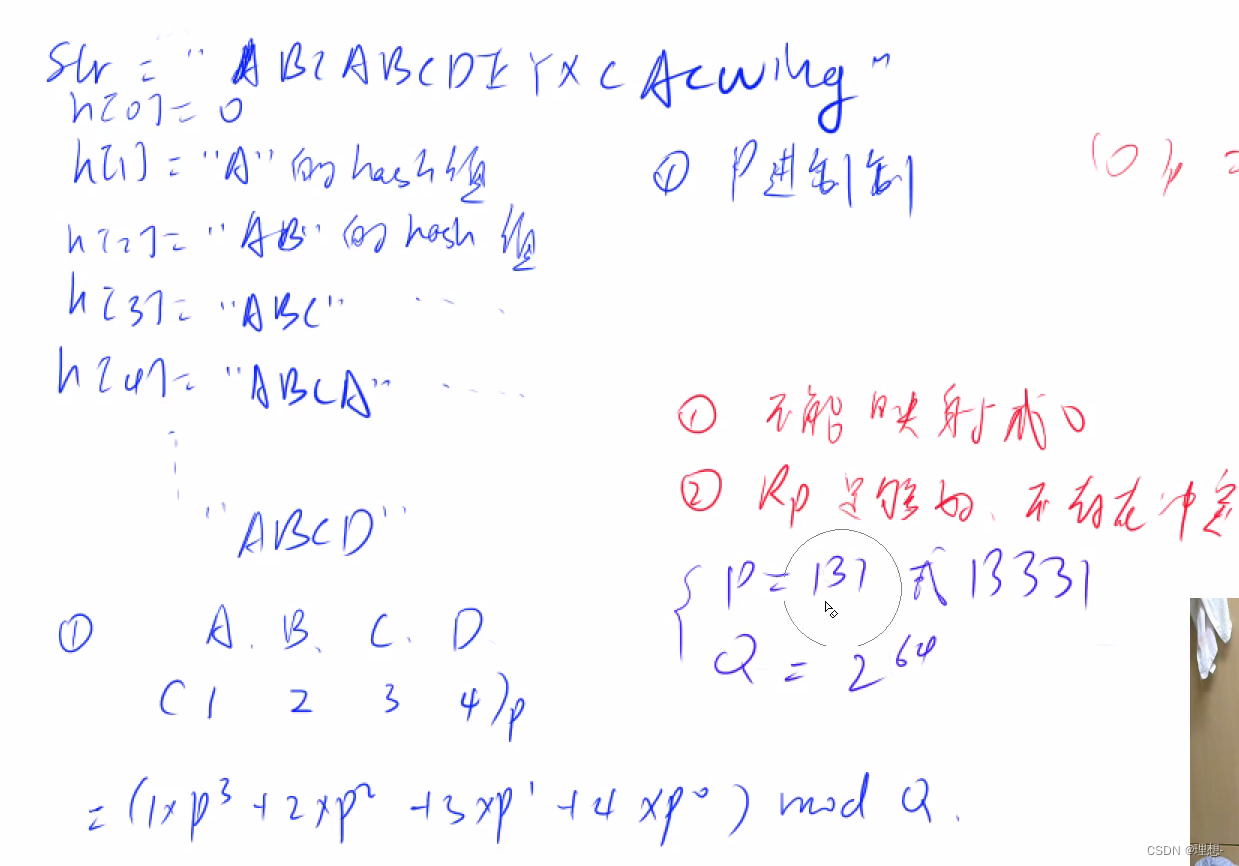 Str = "ABCABCDEYXCAcwing"
h[0] = 0
h[1] = "A" 的hash值
① P进制制
(0)p =
h[2] = "AB" 的hash 值
h[3] = "ABC" ....
h[4] = "ABCA" ....
① 不能映射成0
② Rp足够好、不存在冲突
"ABCD"
{ P = 131 或 13331
Q = 2^64
① A. B、 C. D
( 1 2 3 4 )p
= (1×p^3 + 2×p^2 + 3×p^1 + 4×p^0) mod Q.
CSDN @理想-